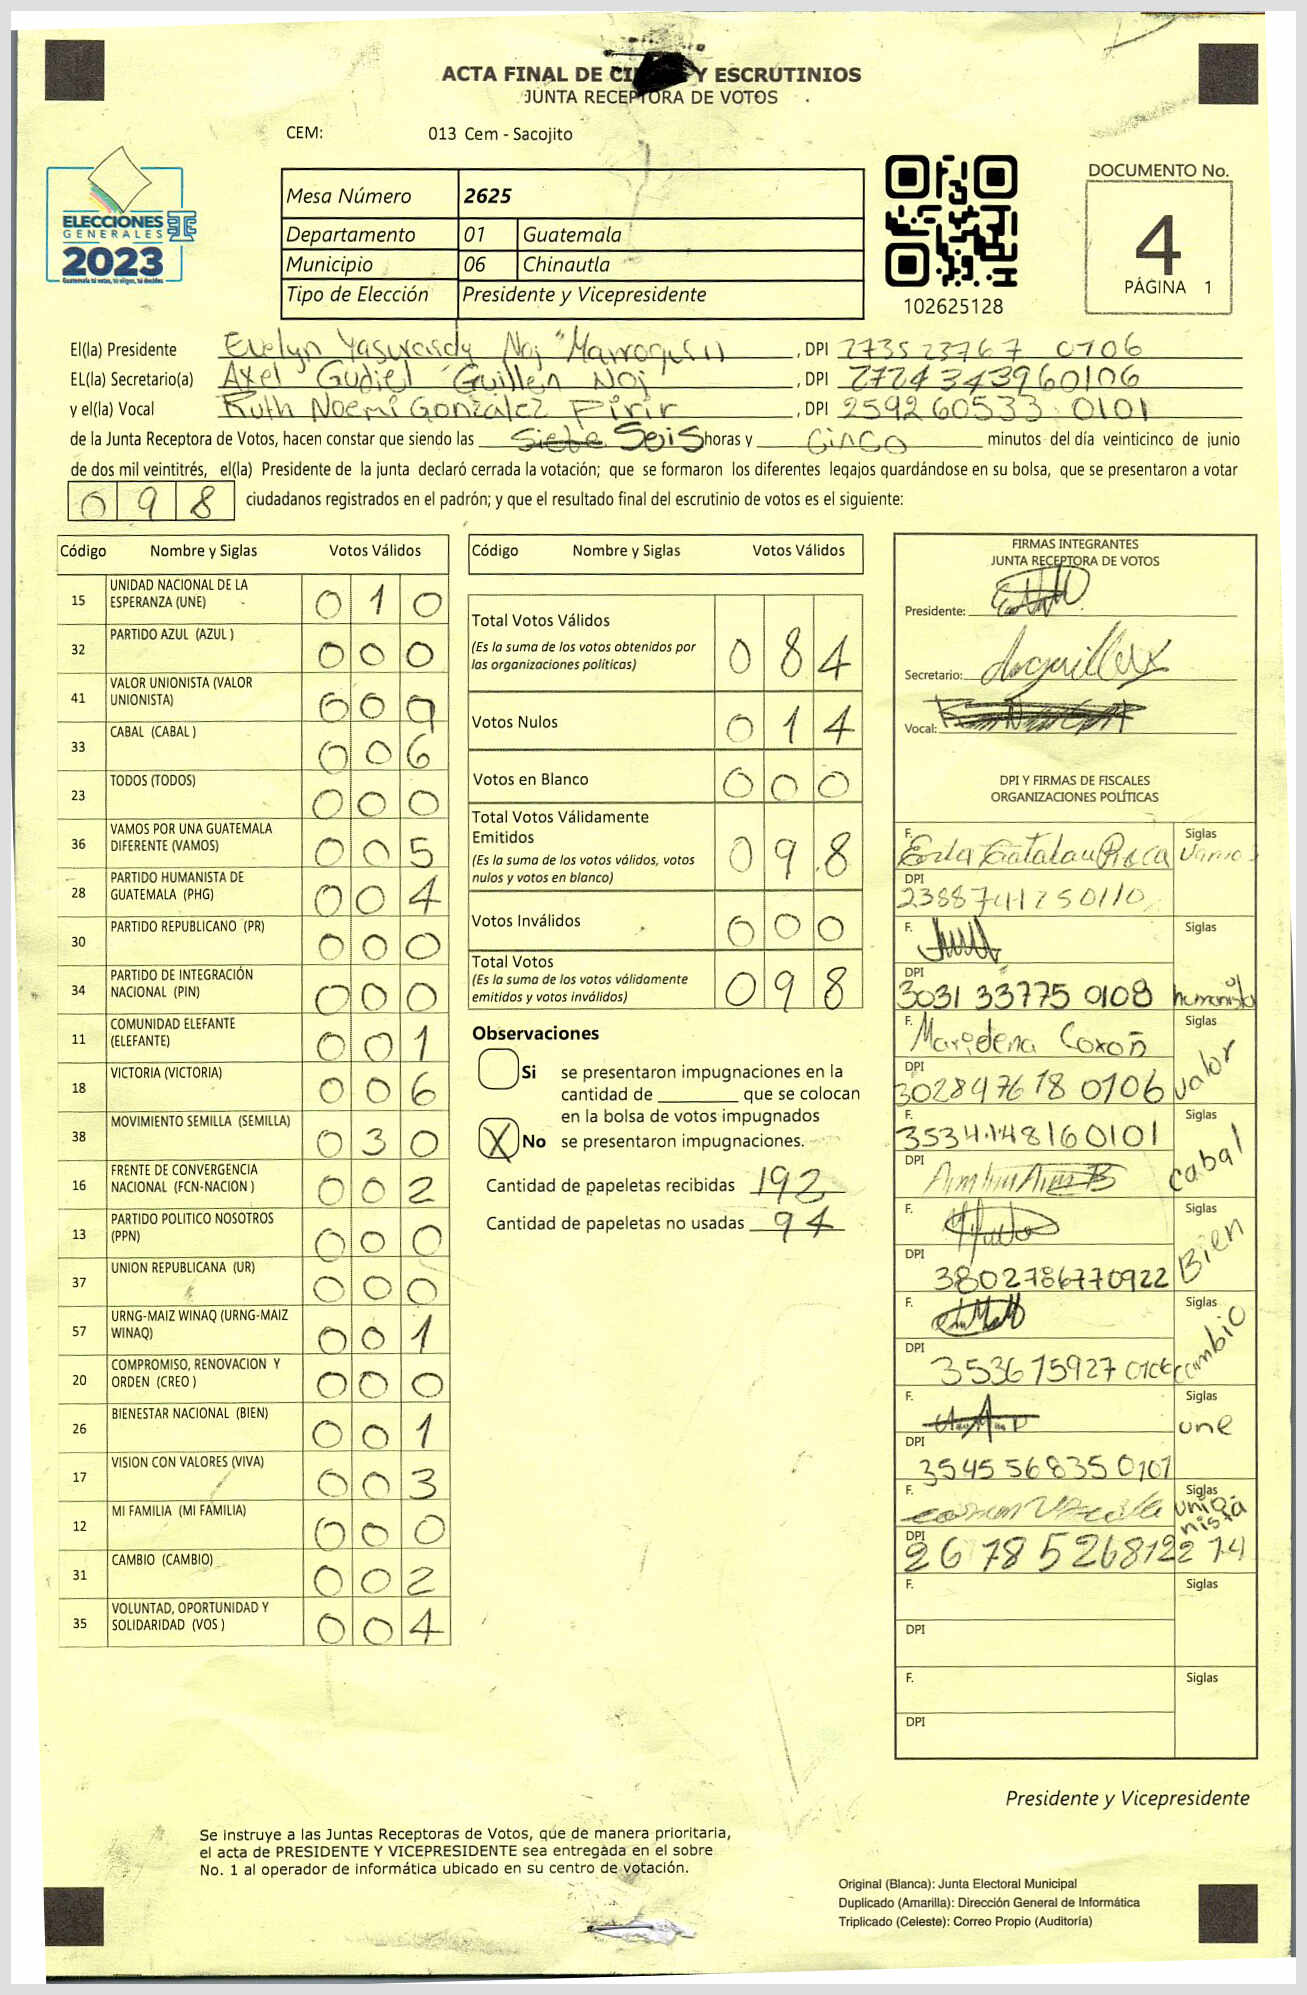 ACTA FINAL DE CI Y ESCRUTINIOS
JUNTA RECEPTORA DE VOTOS
CEM: 013 Cem - Sacojito
ELECCIONES
GENERALES
2023
Guatemala tú votas, tú eliges, tú decides
Mesa Número 2625
Departamento 01 Guatemala
Municipio 06 Chinautla
Tipo de Elección Presidente y Vicepresidente
102625128
DOCUMENTO No.
4
PÁGINA 1
El(la) Presidente Evelyn Noj Marroquin, DPI 273523767 0106
EL(la) Secretario(a) Axel Gudiel Guillen Noj, DPI 2724343960106
y el(la) Vocal Ruth Noemi Gonzalez Pirir, DPI 259260533 0101
de la Junta Receptora de Votos, hacen constar que siendo las Siete Seis horas y Cinco minutos del día veinticinco de junio
de dos mil veintitrés, el(la) Presidente de la junta declaró cerrada la votación; que se formaron los diferentes legajos quardándose en su bolsa, que se presentaron a votar
098 ciudadanos registrados en el padrón; y que el resultado final del escrutinio de votos es el siguiente:
Código Nombre y Siglas Votos Válidos
15 UNIDAD NACIONAL DE LA ESPERANZA (UNE) 0 1 0
32 PARTIDO AZUL (AZUL ) 0 0 0
41 VALOR UNIONISTA (VALOR UNIONISTA) 0 0 9
33 CABAL (CABAL ) 0 0 6
23 TODOS (TODOS) 0 0 0
36 VAMOS POR UNA GUATEMALA DIFERENTE (VAMOS) 0 0 5
28 PARTIDO HUMANISTA DE GUATEMALA (PHG) 0 0 4
30 PARTIDO REPUBLICANO (PR) 0 0 0
34 PARTIDO DE INTEGRACIÓN NACIONAL (PIN) 0 0 0
11 COMUNIDAD ELEFANTE (ELEFANTE) 0 0 1
18 VICTORIA (VICTORIA) 0 0 6
38 MOVIMIENTO SEMILLA (SEMILLA) 0 3 0
16 FRENTE DE CONVERGENCIA NACIONAL (FCN-NACION ) 0 0 2
13 PARTIDO POLITICO NOSOTROS (PPN) 0 0 0
37 UNION REPUBLICANA (UR) 0 0 0
57 URNG-MAIZ WINAQ (URNG-MAIZ WINAQ) 0 0 1
20 COMPROMISO, RENOVACION Y ORDEN (CREO ) 0 0 0
26 BIENESTAR NACIONAL (BIEN) 0 0 1
17 VISION CON VALORES (VIVA) 0 0 3
12 MI FAMILIA (MI FAMILIA) 0 0 0
31 CAMBIO (CAMBIO) 0 0 2
35 VOLUNTAD, OPORTUNIDAD Y SOLIDARIDAD (VOS ) 0 0 4
Código Nombre y Siglas Votos Válidos
Total Votos Válidos 0 8 4
(Es la suma de los votos obtenidos por
las organizaciones políticas)
Votos Nulos 0 1 4
Votos en Blanco 0 0 0
Total Votos Válidamente
Emitidos 0 9 8
(Es la suma de los votos válidos, votos
nulos y votos en blanco)
Votos Inválidos 0 0 0
Total Votos 0 9 8
(Es la suma de los votos válidamente
emitidos y votos inválidos)
Observaciones
Si se presentaron impugnaciones en la
cantidad de ________ que se colocan
en la bolsa de votos impugnados
X No se presentaron impugnaciones.
Cantidad de papeletas recibidas 192
Cantidad de papeletas no usadas 94
FIRMAS INTEGRANTES
JUNTA RECEPTORA DE VOTOS
Presidente:
Secretario:
Vocal:
DPI Y FIRMAS DE FISCALES
ORGANIZACIONES POLÍTICAS
F. Siglas Vamos
DPI
F. Siglas
DPI 3031 33775 0108 humanista
F. Siglas valor
DPI 302897618 0106
F. 3534148160101 Siglas cabal
DPI
F. Siglas Bien
DPI 3802786770922
F. Siglas cambio
DPI 353615927 0106
F. Siglas une
DPI 3545568350101
F. Siglas unionista
DPI 2678526812214
F. Siglas
DPI
F. Siglas
DPI
Presidente y Vicepresidente
Se instruye a las Juntas Receptoras de Votos, que de manera prioritaria,
el acta de PRESIDENTE Y VICEPRESIDENTE sea entregada en el sobre
No. 1 al operador de informática ubicado en su centro de votación.
Original (Blanca): Junta Electoral Municipal
Duplicado (Amarilla): Dirección General de Informática
Triplicado (Celeste): Correo Propio (Auditoría)